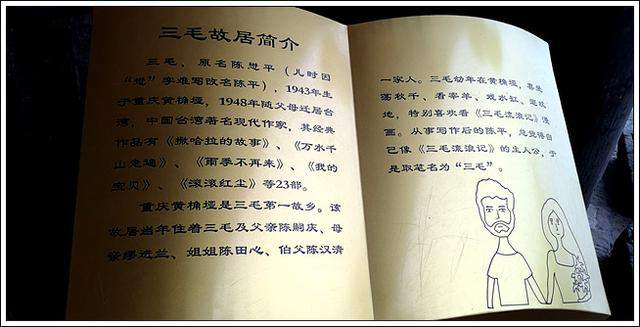 三毛故居简介
三毛，原名陈懋平（儿时因
“懋”字难写改名陈平），1943年生
于重庆黄桷垭，1948年随父母迁居台
湾，中国台湾著名现代作家，其经典
作品有《撒哈拉的故事》、《万水千
山走遍》、《雨季不再来》、《我的
宝贝》、《滚滚红尘》等23部。
重庆黄桷垭是三毛第一故乡。该
故居当年住着三毛及父亲陈嗣庆、母
亲缪进兰、姐姐陈田心、伯父陈汉清
一家人。三毛幼年在黄桷垭，喜爱
荡秋千、看宰羊、戏水缸、逛坟
地，特别喜欢看《三毛流浪记》漫
画。从事写作后的陈平，总觉得自
己像《三毛流浪记》的主人公，于
是取笔名为“三毛”。